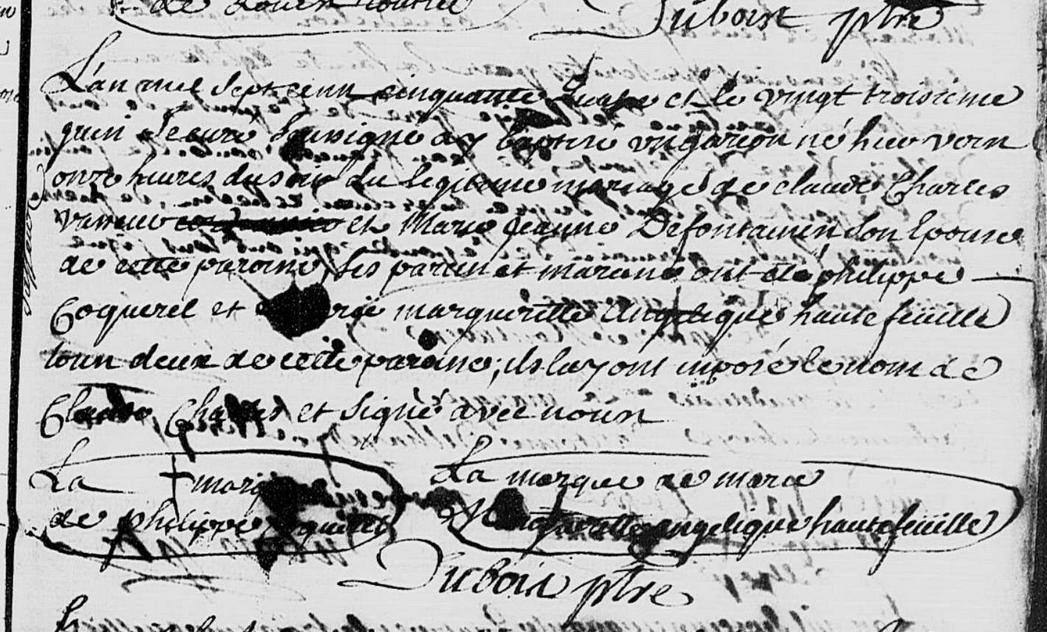 de Rouen
Duboist ptre
L'an mil sept cenn cinquante quatre et le vingt troisieme
juin Je curé soussigné ay baptisé un garcon né hier vern
onze heures du soir du legitime mariage de claude Charles
et Marie Jeanne Defontainen son Epouse
de cette paroine, ses parein et mareine ont été philippe
Coquerel et marie margueritte angelique hautefeuille
toun deux de cette paroine; ils luy ont imposé le nom de
Claude Charles et signé avec noun
La + marque
de philippe
La marque de marie
margueritte angelique hautefeuille
Duboin ptre